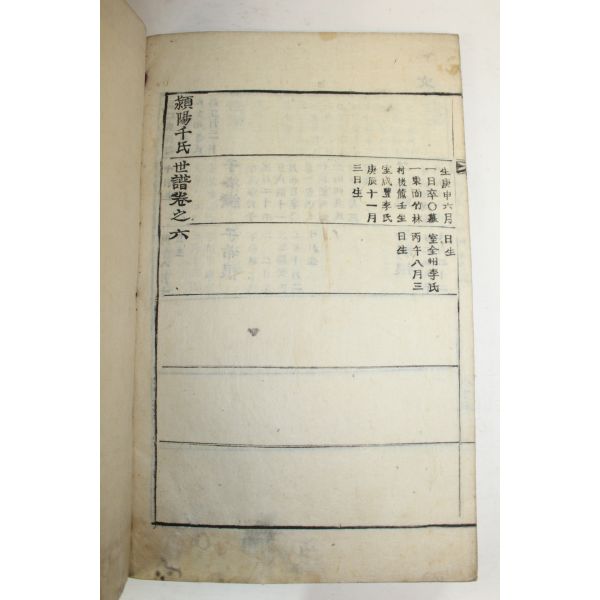 生庚申六月
一日卒〇墓
一東面竹林
村後龍壬坐
室咸豊李氏
庚辰十一月
三日生
日生
室全州李氏
丙午八月三
日生
潁陽千氏世譜卷之六